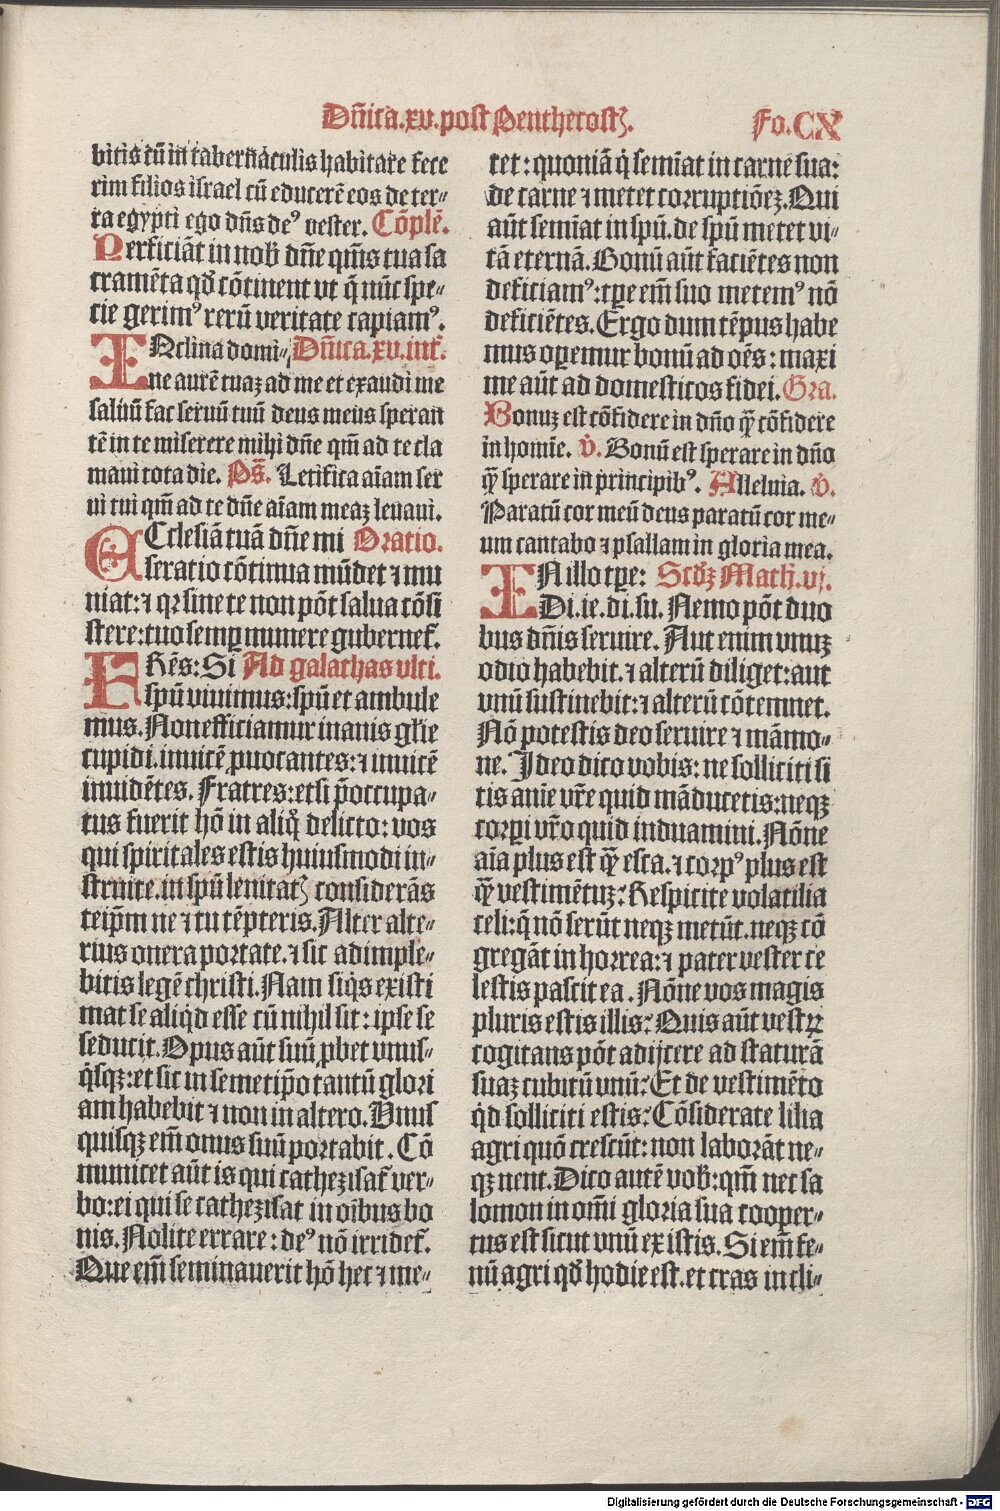 Dñica.xv.post Penthecostꝫ.
Fo.CX
bitis cũ in tabernaculis habitare fece
rim filios israel cũ educerē eos de ter⸗
ra egypti ego dñs deꝰ vester. Cōplē.
Perficiāt in nob̃ dñe qm̄s tua sa
cramēta qđ cōtinent vt q̃ nūc spe⸗
cie gerimꝰ rerū veritate capiamꝰ.
INclina domi⸗ Dñica.xv.int̃.
ne aurē tuaꝫ ad me et exaudi me
saluū fac seruū tuū deus meus speran
tē in te miserere mihi dñe qm̄ ad te cla
maui tota die. Ps̄. Letifica aīam ser
ui tui qm̄ ad te dñe aīam meaꝫ leuaui.
ECclesiā tuā dñe mi Oratio.
seratio cōtinua mūdet ⁊ mu
niat: ⁊ qꝛ sine te non pōt salua cōsi
stere: tuo semꝑ munere gubernet̃.
FRēs: Si Ad galathas vlti.
spū viuimus: spū et ambule
mus. Non efficiamur inanis glīe
cupidi. inuicē ꝓuocantes: ⁊ inuicē
inuidētes. Fratres: etsi p̄occupa⸗
tus fuerit hō in aliq̊ delicto: vos
qui spiritales estis huiusmodi in⸗
struite. in spū lenitatꝫ considerās
teip̄m ne ⁊ tu tēpteris. Alter alte⸗
rius onera portate. ⁊ sic adimple⸗
bitis legē christi. Nam siq̇s existi
mat se aliq̇d esse cū nihil sit: ipse se
seducit. Opus aūt suū ꝓbet vnus⸗
q̇sqꝫ: et sic in semetip̄o tantū glori
am habebit ⁊ non in altero. Vnus
quisqꝫ em̄ onus suū portabit. Cō
municet aūt is qui cathezisat̃ ver⸗
bo: ei qui se cathezisat in oībus bo
nis. Nolite errare: deꝰ nō irridet̃.
Que em̄ seminauerit hō hec ⁊ me⸗
tet: quoniā q̇ semīat in carne sua:
de carne ⁊ metet corruptiōeꝫ. Qui
aūt semīat in spū. de spū metet vi⸗
tā eternā. Bonū aūt faciētes non
deficiamꝰ: tꝑe em̄ suo metemꝰ nō
deficiētes. Ergo dum tēpus habe
mus oꝑemur bonū ad oēs: maxi
me aūt ad domesticos fidei. Gra.
Bonuꝫ est cōfidere in dño q̃ȝ cōfidere
in homīe. v̇. Bonū est sperare in dño
q̃ȝ sperare in principibꝰ. Alleluia. v̇.
Paratū cor meū deus paratū cor me⸗
um cantabo ⁊ psallam in gloria mea.
IN illo tꝑe: Scd̄ꝫ Math. vj.
Di. ie. di. su. Nemo pōt duo
bus dñis seruire. Aut enim vnuꝫ
odio habebit. ⁊ alterū diliget: aut
vnū sustinebit: ⁊ alterū cōtemnet.
Nō potestis deo seruire ⁊ māmo⸗
ne. Ideo dico vobis: ne solliciti si
tis anīe vr̄e quid māducetis: neqꝫ
corꝑi vr̄o quid induamini. Nōne
aīa plus est q̃ȝ esca. ⁊ corpꝰ plus est
q̃ȝ vestimētuꝫ: Respicite volatilia
celi: q̃ nō serūt neqꝫ metūt. neqꝫ cō
gregāt in horrea: ⁊ pater vester ce
lestis pascit ea. Nōne vos magis
pluris estis illis: Quis aūt vestꝝ
cogitans pōt adijcere ad staturā
suaꝫ cubitū vnū: Et de vestimēto
q̇d solliciti estis: Cōsiderate lilia
agri quō crescūt: non laborāt ne⸗
qꝫ nent. Dico autē vob̃: qm̄ nec sa
lomon in om̄i gloria sua cooper⸗
tus est sicut vnū ex istis. Si em̄ fe⸗
nū agri qđ hodie est. et cras in cli⸗
Digitalisierung gefördert durch die Deutsche Forschungsgemeinschaft - DFG